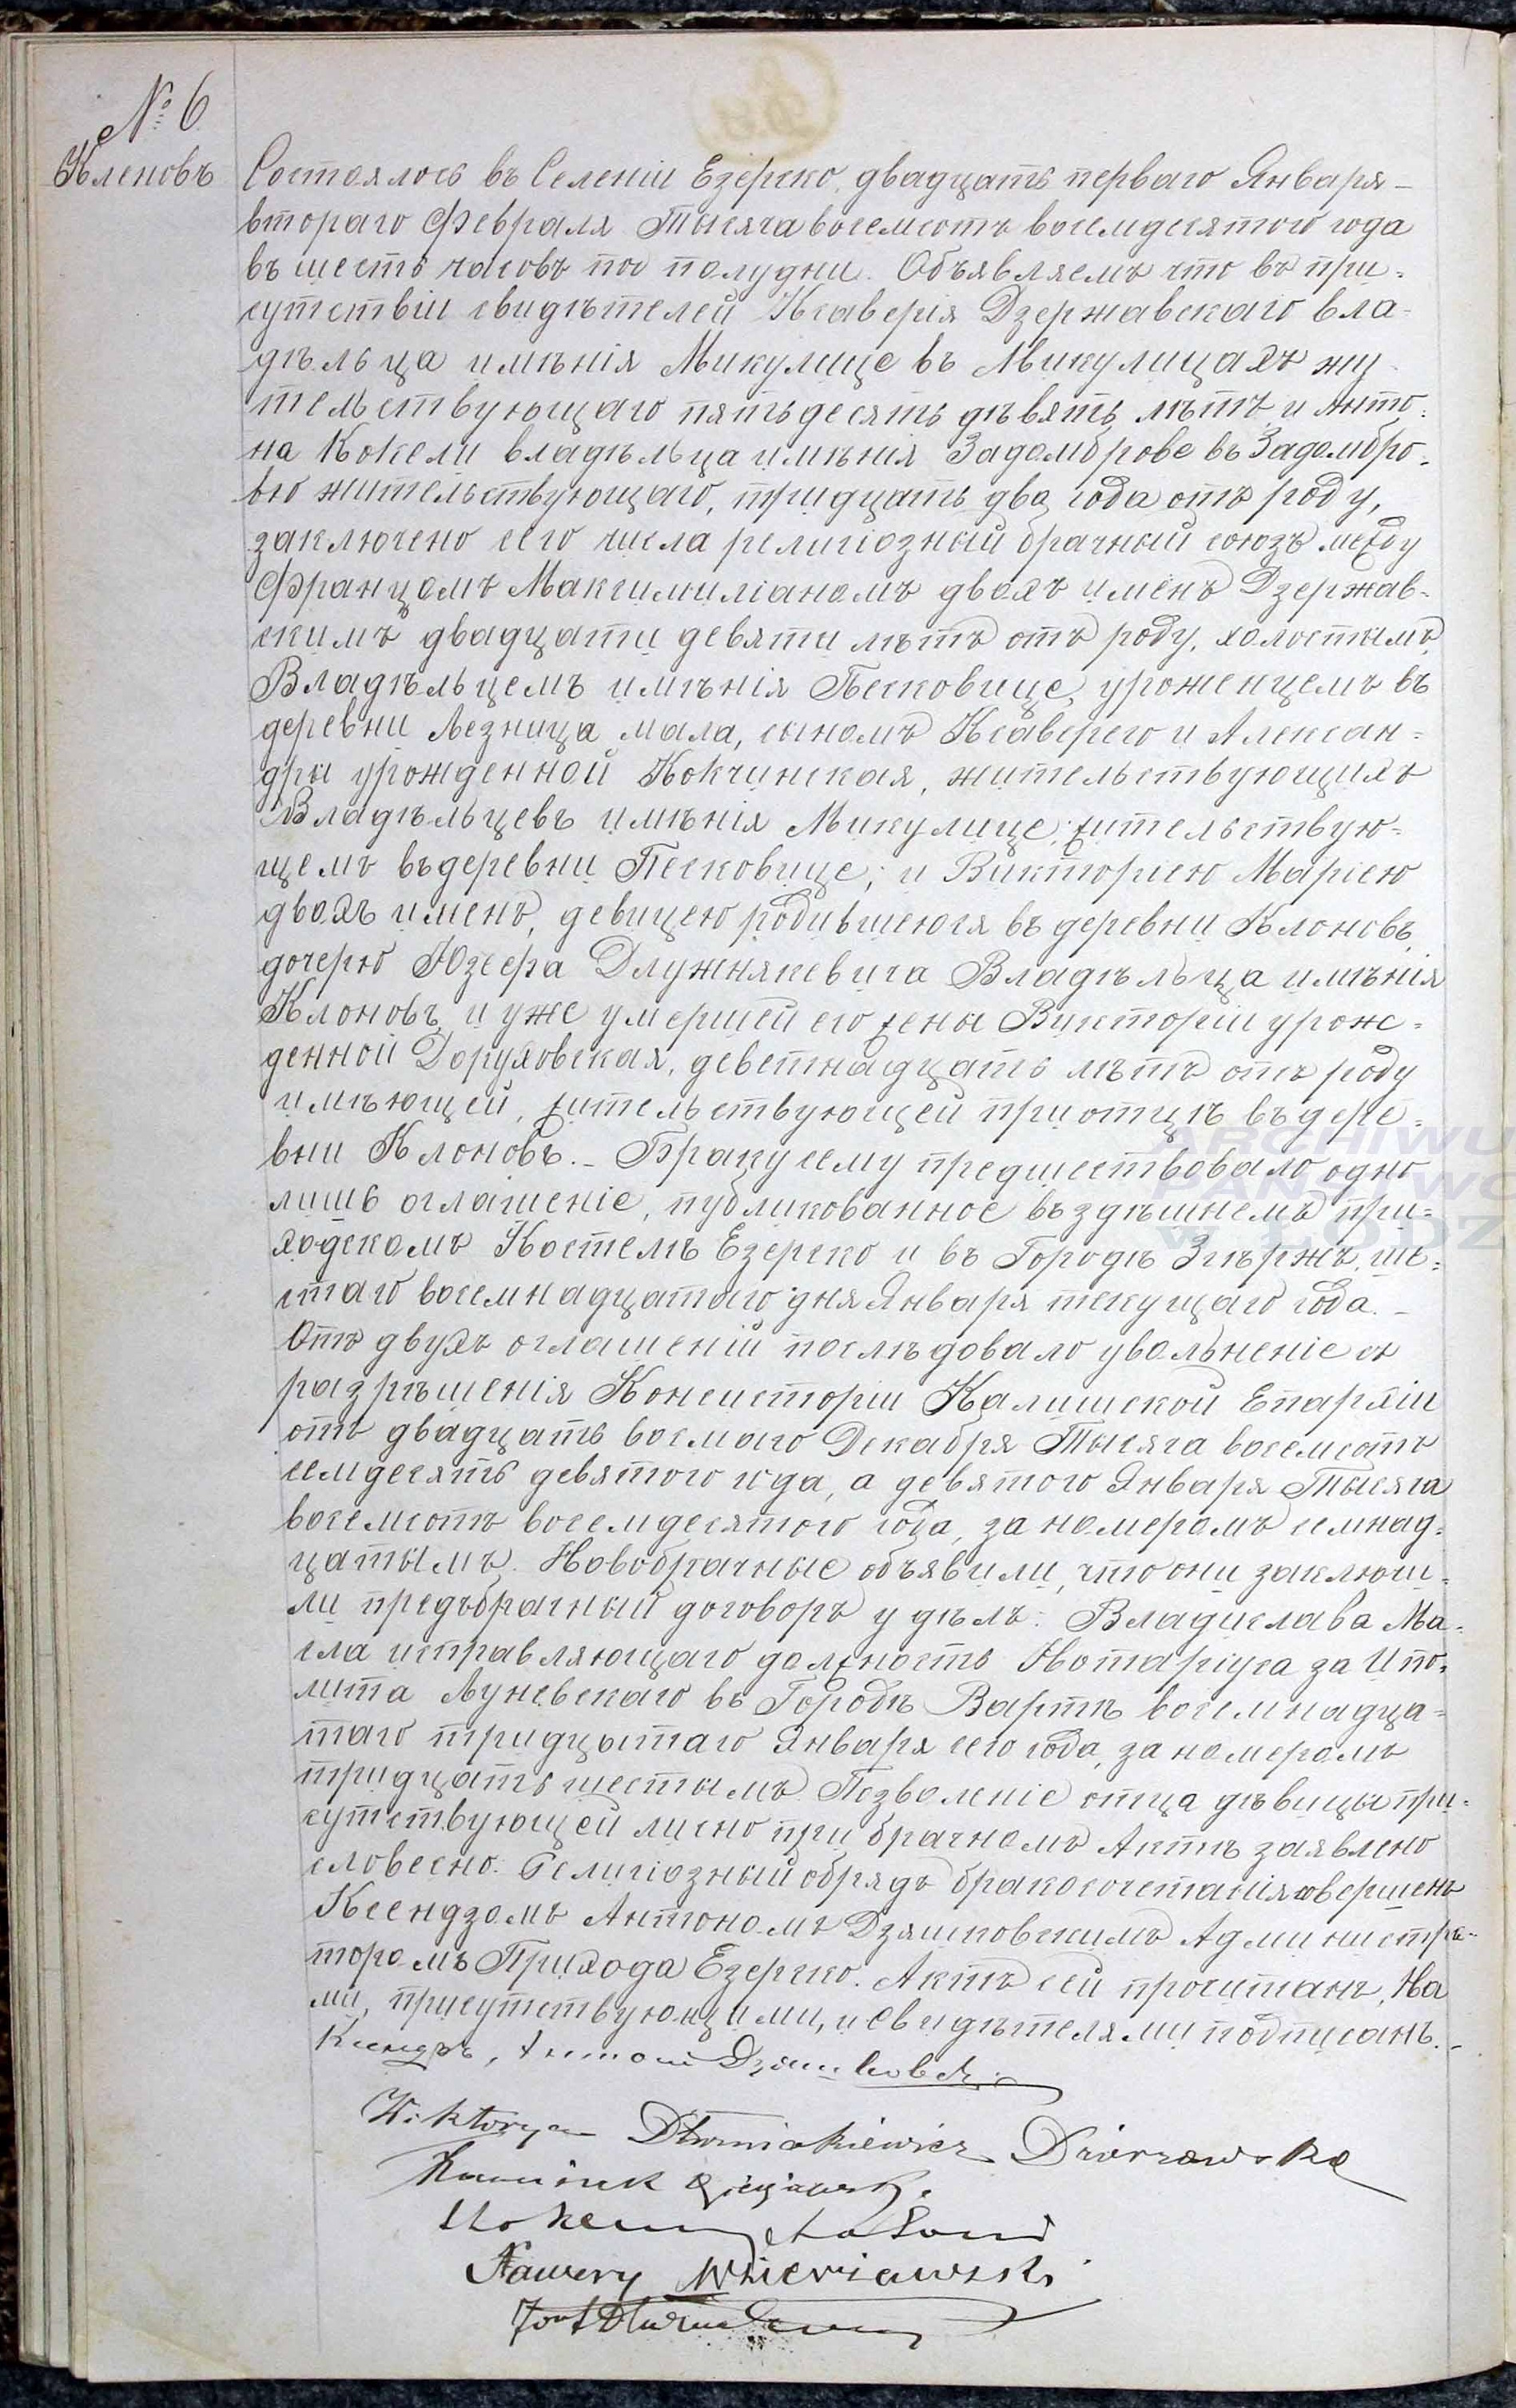 № 6
Кленовъ
Состоялось въ Селеніи Езерско, двадцать перваго Января –
втораго Февраля Тысяча восемсотъ восемдесятого года
въ шесть часовъ по полудни. Объявляемъ что въ при-
сутствіи свидѣтелей Ксаверія Дзержавскаго вла-
дѣльца имѣнія Микулице въ Микулицахъ жи-
тельствующаго пятьдесять дѣвять лѣтъ и Анто-
на Кокели владѣльца имѣнія Задомброве въ Задомбро-
вю жительствующаго, тридцать два года отъ роду,
заключено сего числа религіозный брачный союзъ между
Францомъ Максимиліаномъ двохъ именъ Дзержав-
скимъ двадцати девяти лѣтъ отъ роду, холостымъ,
Владѣльцемъ имѣнія Песковице, уроженцемъ въ
деревни Лезница мала, сыномъ Ксаверего и Алексан-
дры урожденной Кокчинская, жительствующихъ
Владѣльцевъ имѣнія Микулице, жительствую-
щемъ въ деревни Песковице; и Викторіею Маріею
двохъ именъ, девицею родившеюся въ деревни Клоновъ,
дочерю Юзефа Длужнякевича Владѣльца имѣнія
Клоновъ и уже умершей его жены Викторіи урож-
денной Доруховская, деветнадцать лѣтъ отъ роду
имѣющей, жительствующей при отцѣ въ дере-
вни Клоновъ. – Браку сему предшествовало одно
лишь оглашеніе, публикованное въ здѣшнемъ при-
ходскомъ Костелѣ Езерско и въ Городѣ Згѣржъ, ше-
стаго восемнадцатаго дня Января текущаго года. –
Отъ двухъ оглашеній послѣдовало увольненіе съ
разрѣшенія Консисторіи Калишской Епархіи
отъ двадцать восмаго Декабря Тысяча восемсотъ
семдесять девятого года, а девятого Января Тысяча
восемсотъ восемдесятого года, за номеромъ семнад-
цатымъ. Новобрачные объявили, что они заключи-
ли предъбрачный договоръ у дѣлъ: Владислава Ма-
сла исправляющаго должность Нотаріуса за Ипо-
лита Луневскаго въ Городѣ Вартѣ восемнадца-
таго тридцатаго Января сего года, за номеромъ
тридцать шестымъ. Позволеніе отца дѣвицы при-
сутствующей лисно при брачномъ Актѣ заявлено
словесно. Религіозный обрядъ бракосочетанія совершенъ
Ксендзомъ Антономъ Дзяшковскимъ Администра-
торомъ Прихода Езерско. Актъ сей прочитанъ, На
ми, присутствующими, и Свидѣтелями подписанъ. –
Ксендзъ, Антоній Дзяшковскі
Wiktorya Dłużniakiewicz Dzierzawska
Kokeli Antoni
Xawery Dzierżawski